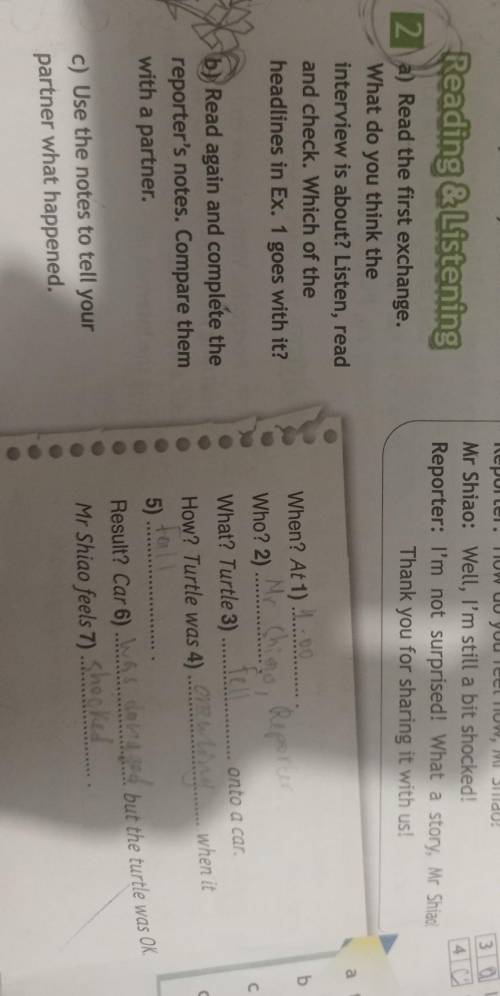 Reading & Listening
2 a) Read the first exchange.
What do you think the
interview is about? Listen, read
and check. Which of the
headlines in Ex. 1 goes with it?
b) Read again and complete the
reporter's notes. Compare them
with a partner.
c) Use the notes to tell your
partner what happened.
Mr Shiao: Well, I'm still a bit shocked!
Reporter: I'm not surprised! What a story, Mr Shiao!
Thank you for sharing it with us!
When? At 1) 4.00
Who? 2) Mr Shiao, Reporter
What? Turtle 3) fell onto a car.
How? Turtle was 4) crawling when it
5) fall
Result? Car 6) was damaged but the turtle was OK.
Mr Shiao feels 7) shocked
3
4 C
a
b
c